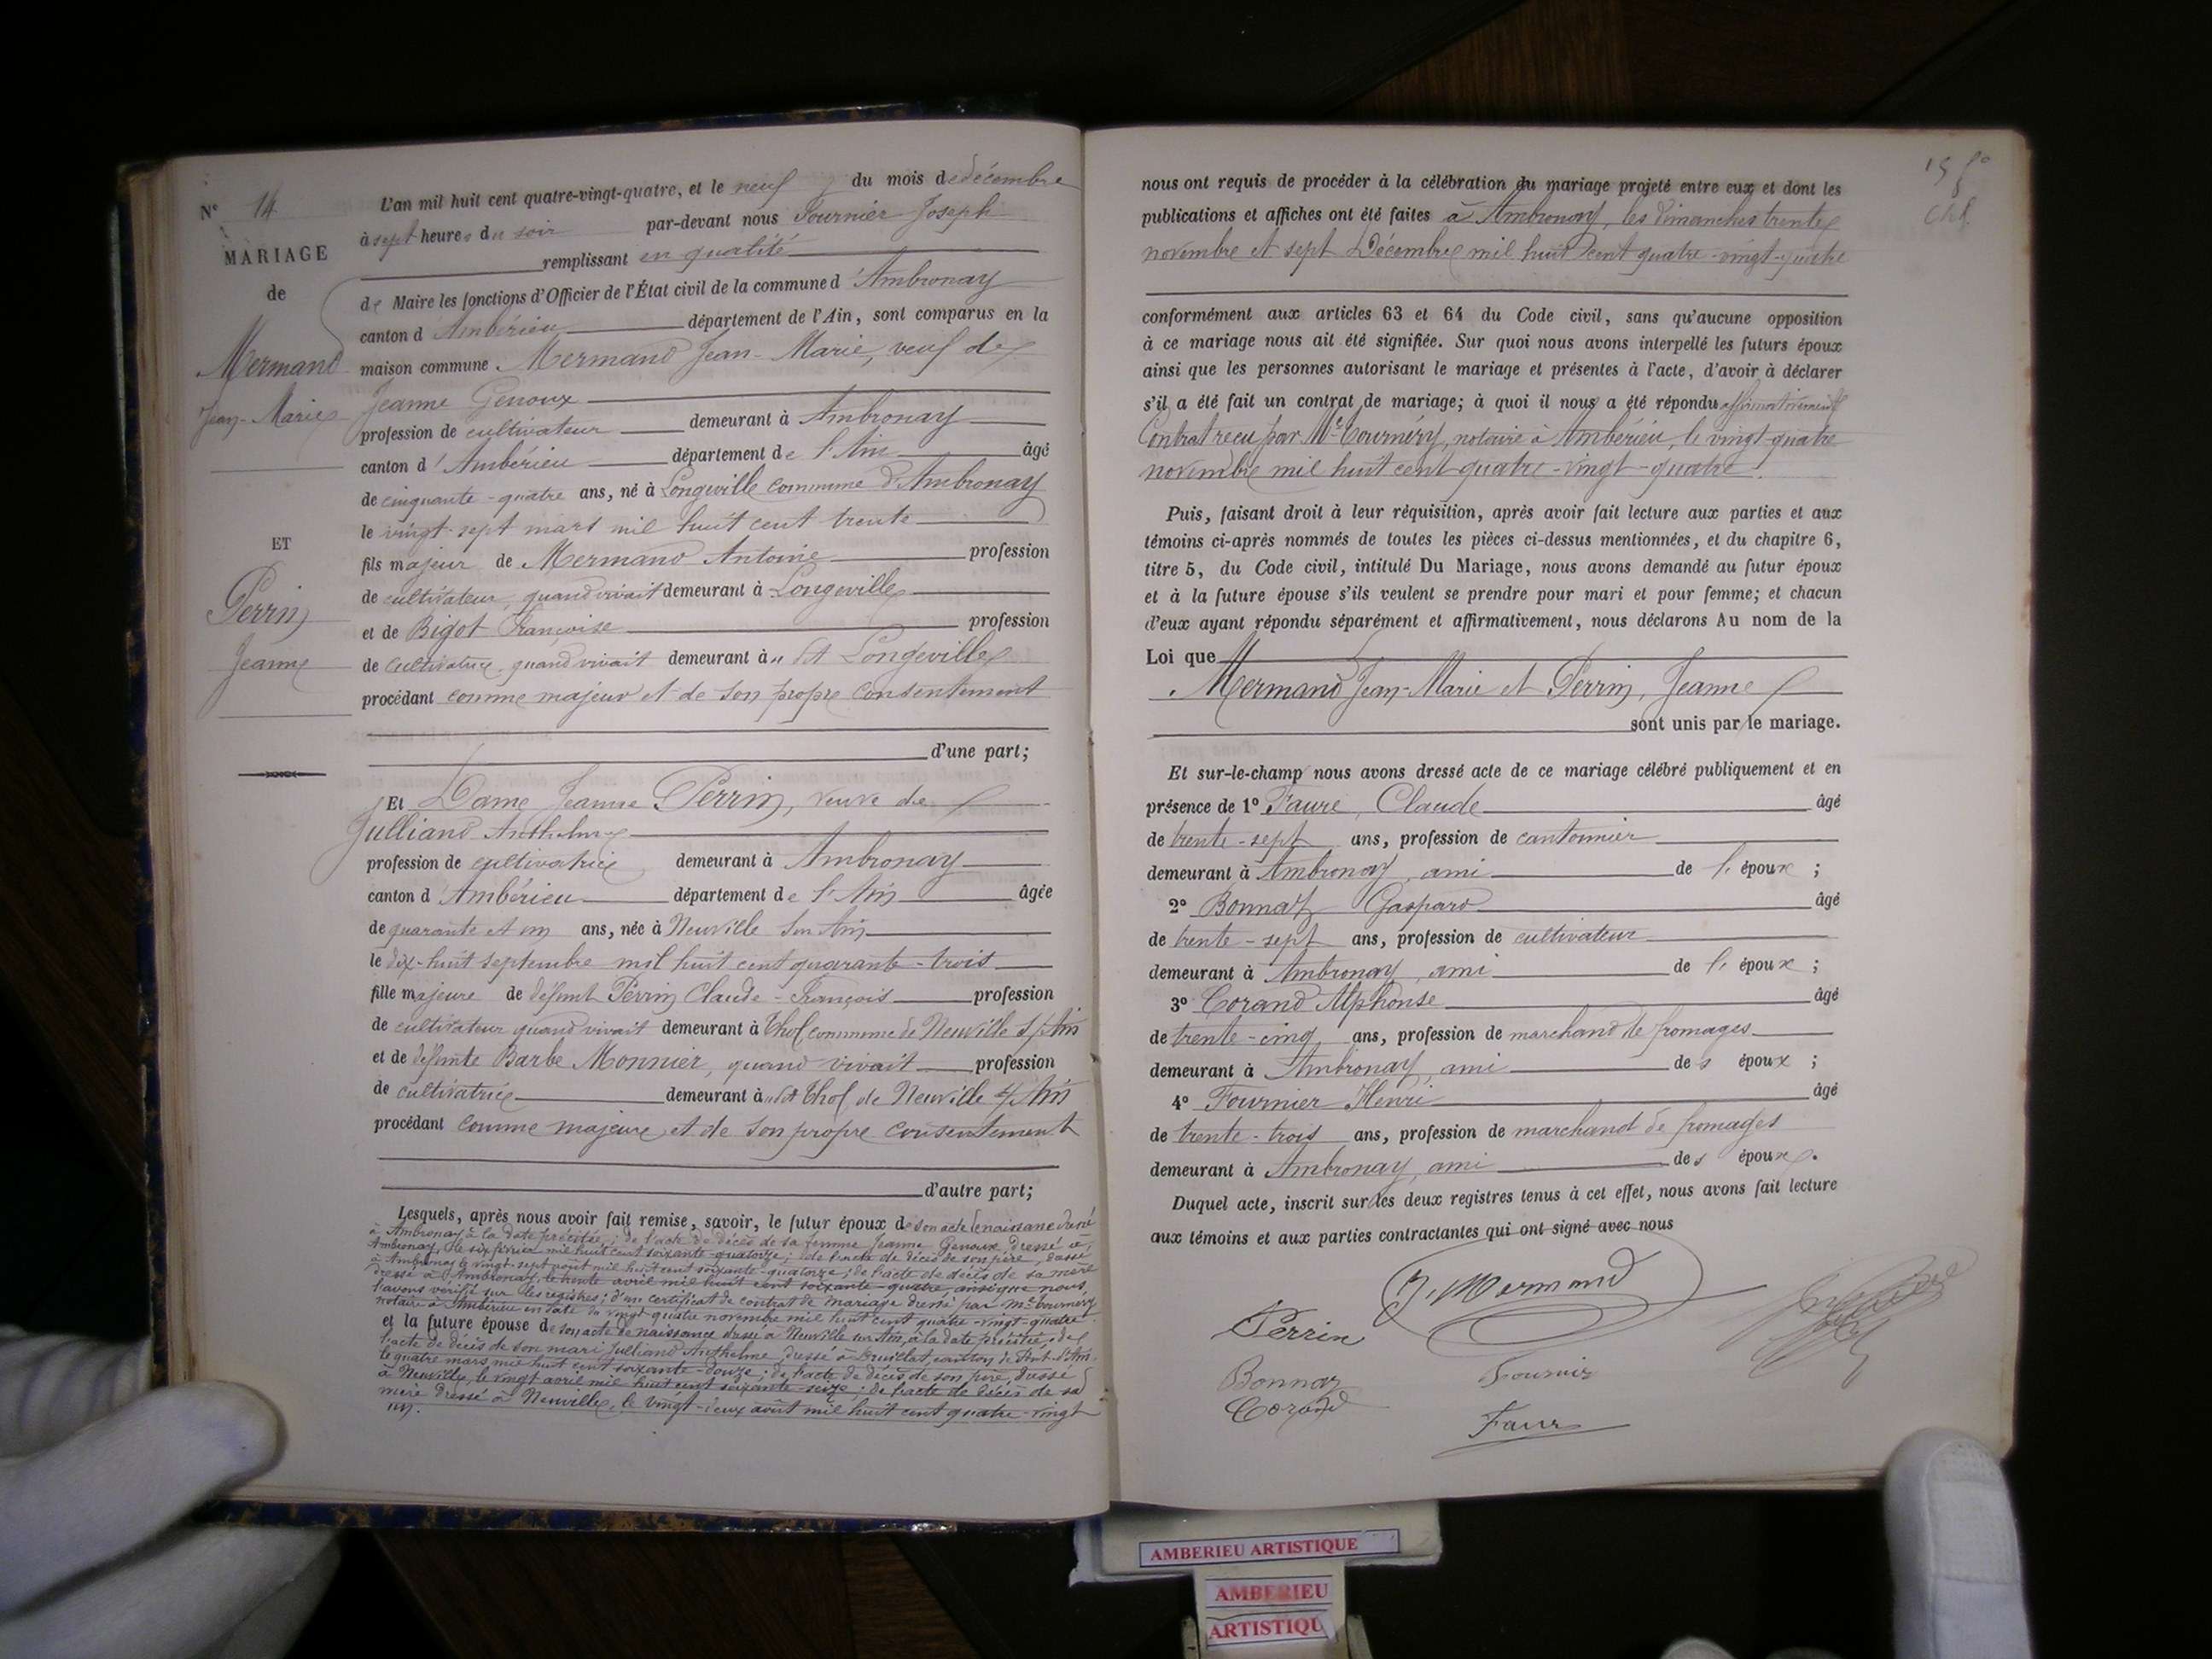 N° 14
MARIAGE
de
Mermand
Jean-Marie
ET
Perrin
Jeanne
L'an mil huit cent quatre-vingt-quatre, et le neuf du mois de décembre
à sept heures du soir par-devant nous Fournier Joseph
remplissant en qualité
de Maire les fonctions d'Officier de l'État civil de la commune d'Ambronay
canton d'Ambérieu département de l'Ain, sont comparus en la
maison commune Mermand Jean-Marie, veuf de
Jeanne Genoux
profession de cultivateur demeurant à Ambronay
canton d'Ambérieu département de l'Ain âgé
de cinquante-quatre ans, né à Longeville commune d'Ambronay
le vingt-sept mars mil huit cent trente
fils majeur de Mermand Antoine profession
de cultivateur, quand vivait demeurant à Longeville
et de Bigot Françoise profession
de cultivatrice quand vivait demeurant à u dt Longeville
procédant comme majeur et de son propre consentement
d'une part;
Et Dame Jeanne Perrin, veuve de
Julliand Anthelme
profession de cultivatrice demeurant à Ambronay
canton d'Ambérieu département de l'Ain âgée
de quarante et un ans, née à Neuville sur Ain
le dix-huit septembre mil huit cent quarante-trois
fille majeure de défunt Perrin Claude-François profession
de cultivateur quand vivait demeurant à Thol commune de Neuville s/Ain
et de défunte Barbe Monnier, quand vivait profession
de cultivatrice demeurant à u dt Thol de Neuville s/Ain
procédant comme majeure et de son propre consentement
d'autre part;
Lesquels, après nous avoir fait remise, savoir, le futur époux de son acte de naissance dressé
à Ambronay à la date précitée; de l'acte de décès de sa femme Jeanne Genoux dressé à
Ambronay, le six février mil huit cent soixante-quatorze; de l'acte de décès de son père, dressé
à Ambronay le vingt-sept août mil huit cent soixante-quatorze; de l'acte de décès de sa mère
dressé à Ambronay, le trente avril mil huit cent soixante-quatre, ainsi que nous
l'avons vérifié sur les registres; d'un certificat de contrat de mariage dressé par Me Tournéry
notaire à Ambérieu en date du vingt-quatre novembre mil huit cent quatre-vingt-quatre
et la future épouse de son acte de naissance dressé à Neuville sur Ain, à la date précitée; de
l'acte de décès de son mari Julliand Anthelme dressé à Druillat, canton de Pont-d'Ain,
le quatre mars mil huit cent soixante-douze; de l'acte de décès de son père, dressé
à Neuville, le vingt avril mil huit cent soixante-seize; de l'acte de décès de sa
mère dressé à Neuville, le vingt-deux août mil huit cent quatre-vingt
un.
15 fo
nous ont requis de procéder à la célébration du mariage projeté entre eux et dont les
publications et affiches ont été faites à Ambronay, les dimanches trente
novembre et sept Décembre mil huit cent quatre-vingt-quatre
conformément aux articles 63 et 64 du Code civil, sans qu'aucune opposition
à ce mariage nous ait été signifiée. Sur quoi nous avons interpellé les futurs époux
ainsi que les personnes autorisant le mariage et présentes à l'acte, d'avoir à déclarer
s'il a été fait un contrat de mariage; à quoi il nous a été répondu affirmativement
Contrat reçu par Me Tournéry, notaire à Ambérieu, le vingt-quatre
novembre mil huit cent quatre-vingt-quatre.
Puis, faisant droit à leur réquisition, après avoir fait lecture aux parties et aux
témoins ci-après nommés de toutes les pièces ci-dessus mentionnées, et du chapitre 6,
titre 5, du Code civil, intitulé Du Mariage, nous avons demandé au futur époux
et à la future épouse s'ils veulent se prendre pour mari et pour femme; et chacun
d'eux ayant répondu séparément et affirmativement, nous déclarons Au nom de la
Loi que
Mermand Jean-Marie et Perrin, Jeanne
sont unis par le mariage.
Et sur-le-champ nous avons dressé acte de ce mariage célébré publiquement et en
présence de 1° Faure, Claude âgé
de trente-sept ans, profession de cantonnier
demeurant à Ambronay, ami de l'époux;
2° Bonnaz Gaspard âgé
de trente-sept ans, profession de cultivateur
demeurant à Ambronay, ami de l'époux;
3° Corand Alphonse âgé
de trente-cinq ans, profession de marchand de fromages
demeurant à Ambronay, ami des époux;
4° Fournier Henri âgé
de trente-trois ans, profession de marchand de fromages
demeurant à Ambronay, ami des époux.
Duquel acte, inscrit sur les deux registres tenus à cet effet, nous avons fait lecture
aux témoins et aux parties contractantes qui ont signé avec nous
J. Mermand
Perrin
Bonnaz
Fournier
Corand
Faure
AMBERIEU ARTISTIQUE
AMBERIEU
ARTISTIQU